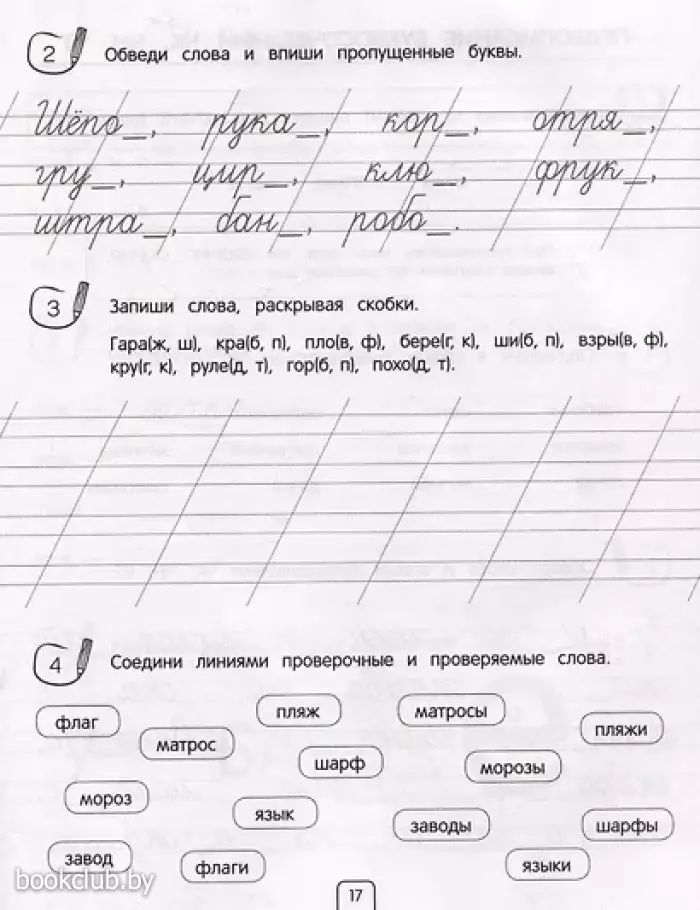 2 Обведи слова и впиши пропущенные буквы.
Шёпо_, рука_, кор_, отря_,
гру_, цир_, клю_, фрук_,
штра_, бан_, робо_.
3 Запиши слова, раскрывая скобки.
Гара(ж, ш), кра(б, п), пло(в, ф), бере(г, к), ши(б, п), взры(в, ф),
кру(г, к), руле(д, т), гор(б, п), похо(д, т).
4 Соедини линиями проверочные и проверяемые слова.
флаг
пляж
матросы
матрос
пляжи
шарф
морозы
мороз
язык
заводы
шарфы
завод
флаги
языки
bookclub.by
17